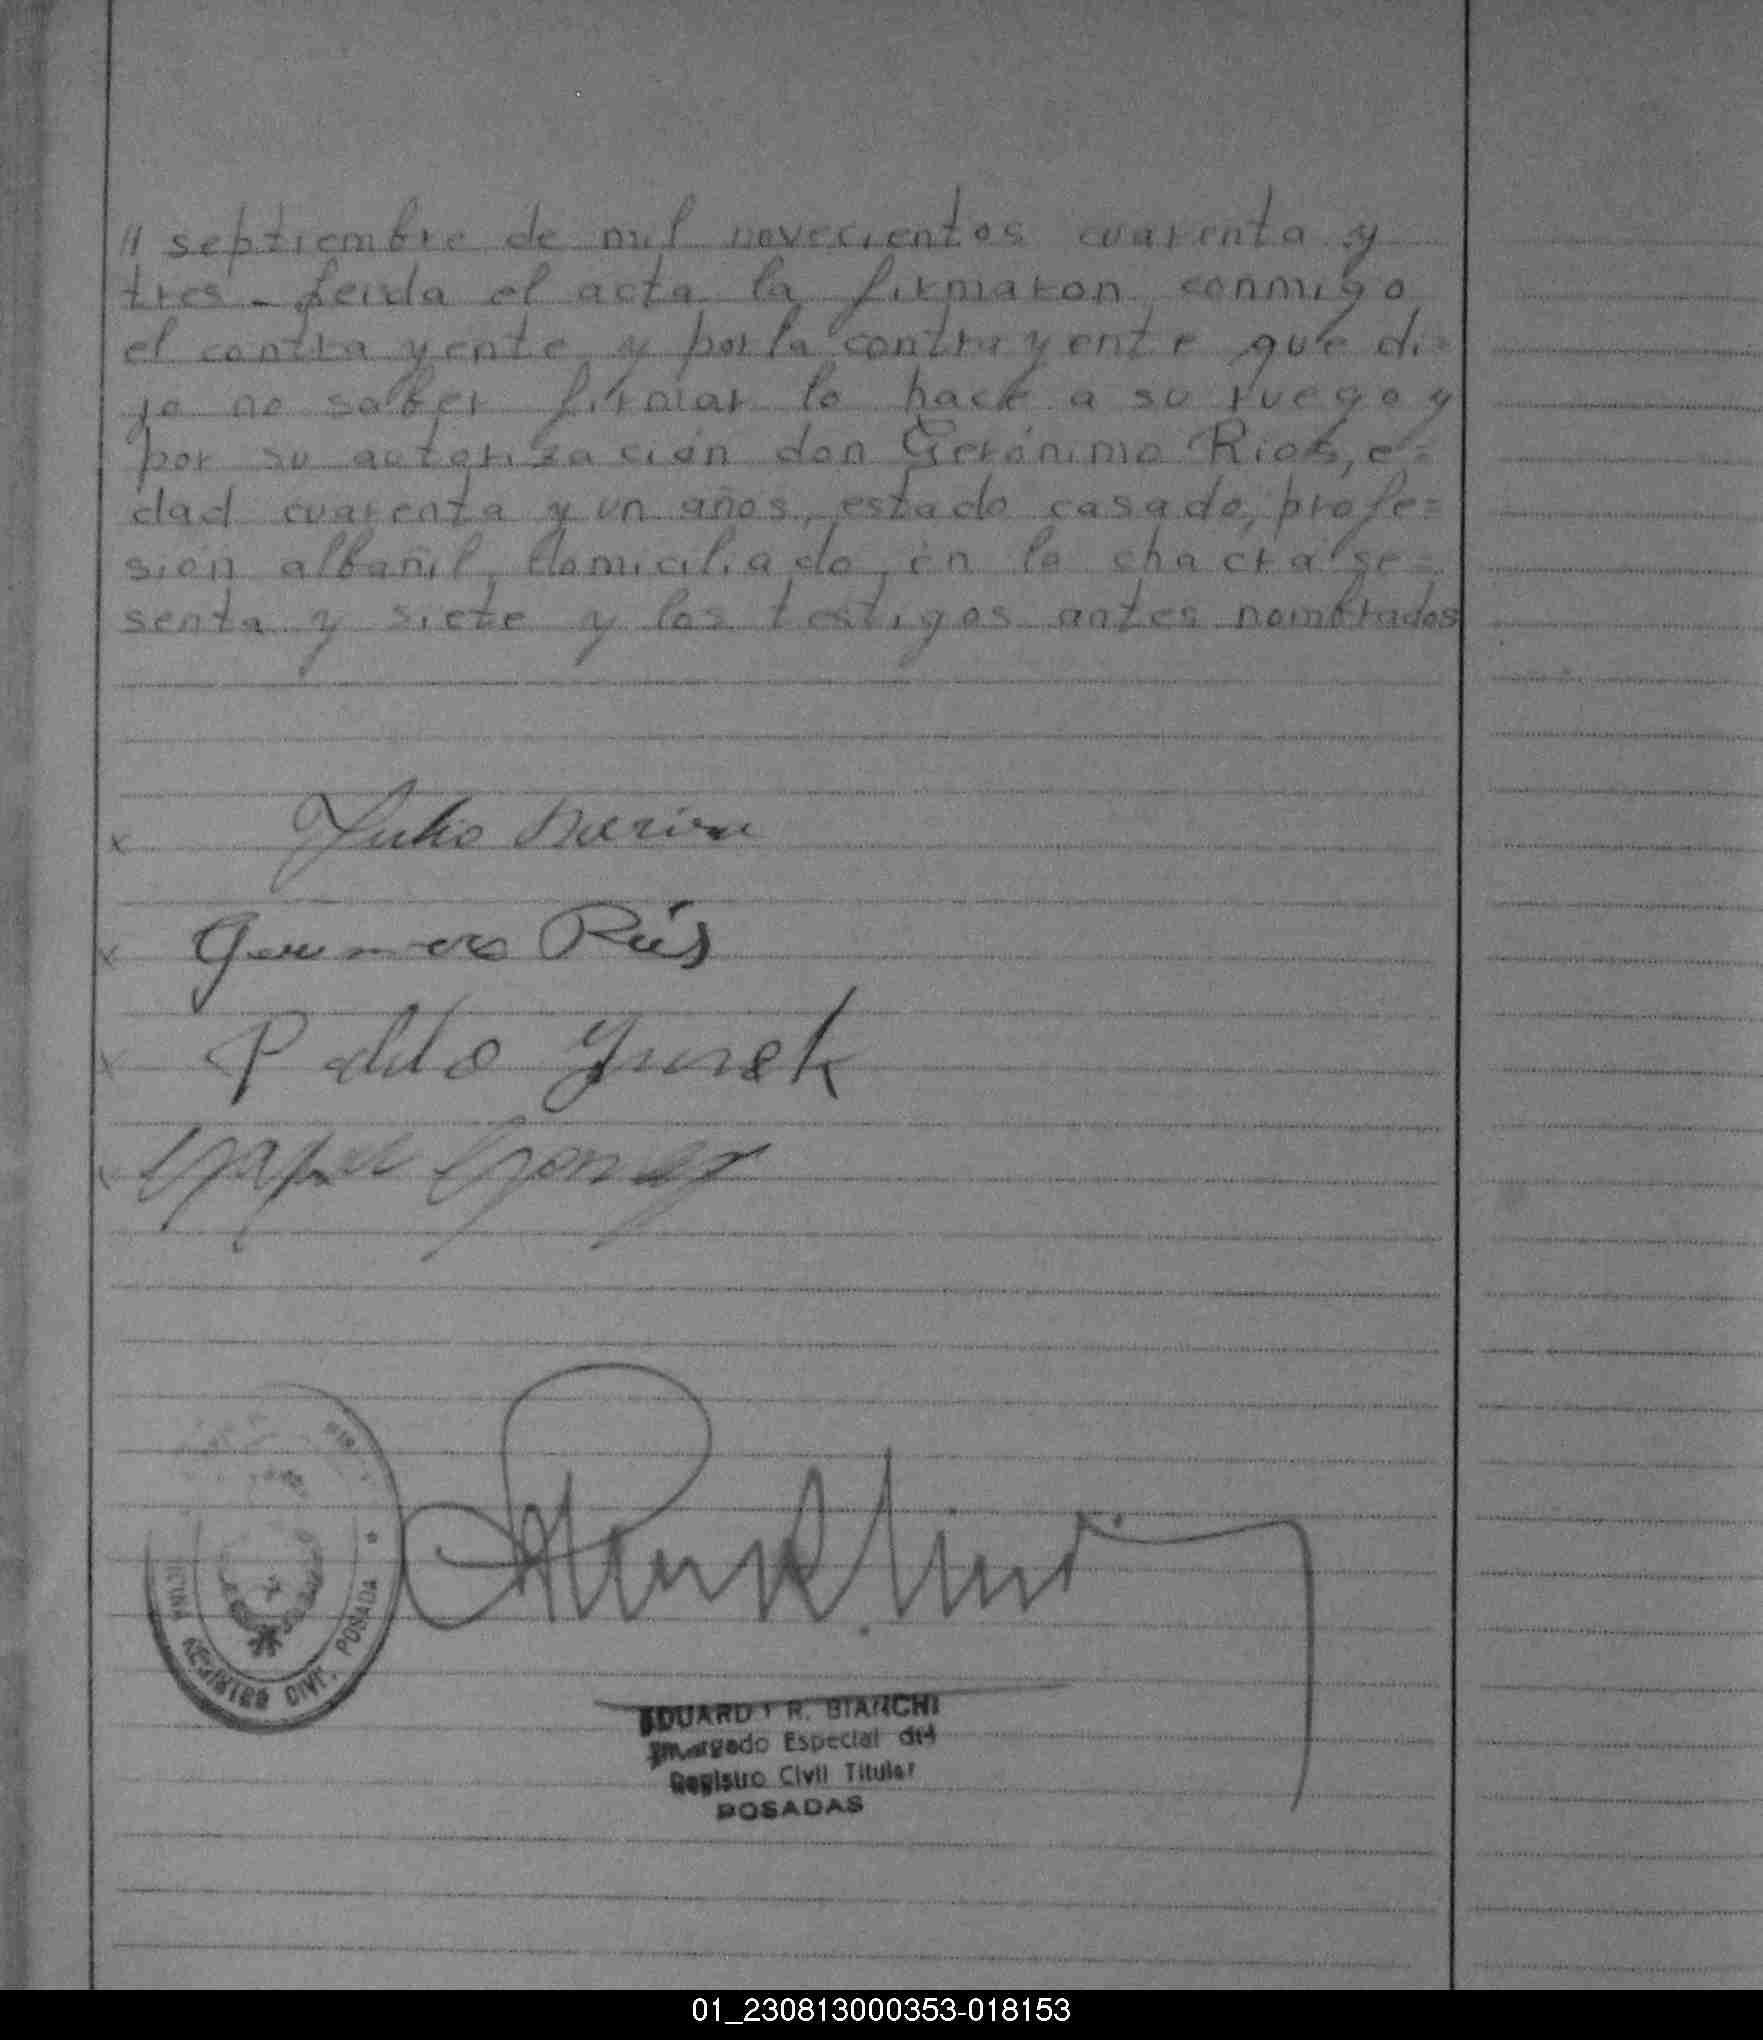 " septiembre de mil novecientos cuarenta y
tres - Leida el acta la firmaron conmigo
el contrayente y por la contrayente que di=
jo no saber firmar lo hace a su ruego y
por su autorización don Gerónimo Rios, e=
dad cuarenta y un años, estado casado, profe=
sión albañil, domiciliado en la chacra se=
senta y siete y los testigos antes nombrados
x Julio
x Rios
x Pablo Yurek
x Gomez
REGISTRO CIVIL. POSADA *
EDUARDO R. BIANCHI
Encargado Especial del
Registro Civil Titular
POSADAS
01_230813000353-018153